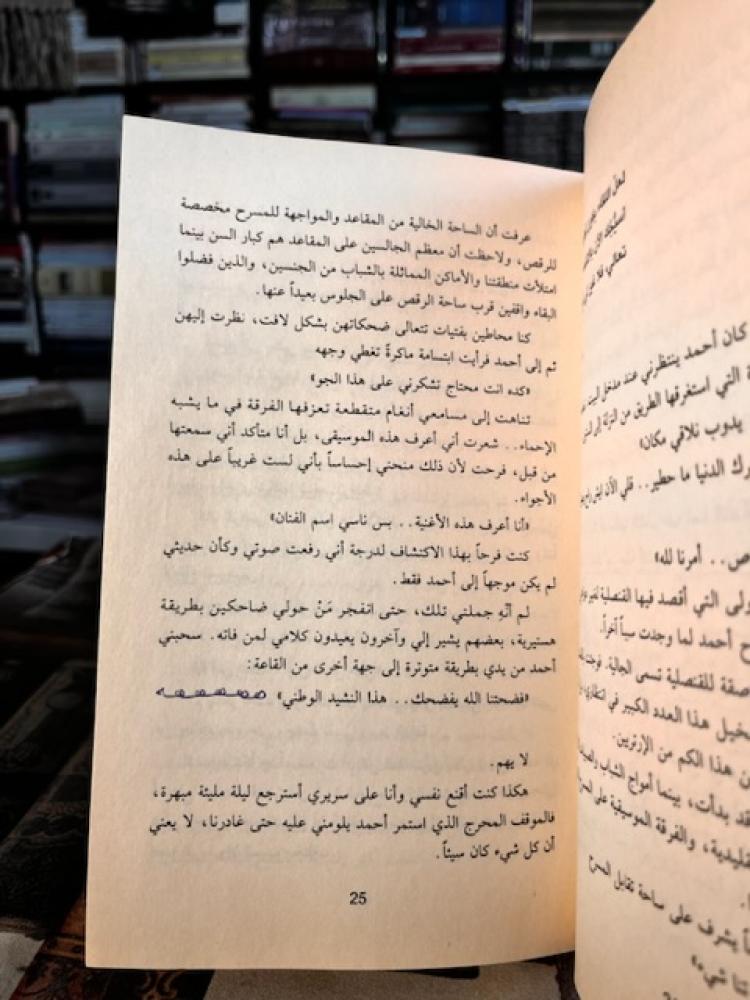 عرفت أن الساحة الخالية من المقاعد والمواجهة للمسرح مخصصة
للرقص، ولاحظت أن معظم الجالسين على المقاعد هم كبار السن بينما
امتلأت منطقتنا والأماكن المماثلة بالشباب من الجنسين، والذين فضلوا
البقاء واقفين قرب ساحة الرقص على الجلوس بعيداً عنها.
كنا محاطين بفتيات تتعالى ضحكاتهن بشكل لافت، نظرت إليهن
ثم إلى أحمد فرأيت ابتسامة ماكرةً تغطي وجهه
«كده انت محتاج تشكرني على هذا الجو»
تناهت إلى مسامعي أنغام متقطعة تعزفها الفرقة في ما يشبه
الإحماء.. شعرت أني أعرف هذه الموسيقى، بل أنا متأكد أني سمعتها
من قبل، فرحت لأن ذلك منحني إحساساً بأني لست غريباً على هذه
الأجواء.
«أنا أعرف هذه الأغنية.. بس ناسي اسم الفنان»
كنت فرحاً بهذا الاكتشاف لدرجة أني رفعت صوتي وكأن حديثي
لم يكن موجهاً إلى أحمد فقط.
لم أنْهِ جملتي تلك، حتى انفجر مَنْ حولي ضاحكين بطريقة
هستيرية، بعضهم يشير إلي وآخرون يعيدون كلامي لمن فاته. سحبني
أحمد من يدي بطريقة متوترة إلى جهة أخرى من القاعة:
«فضحتنا الله يفضحك.. هذا النشيد الوطني» ههههههه
لا يهم.
هكذا كنت أقنع نفسي وأنا على سريري أسترجع ليلة مليئة مبهرة،
فالموقف المحرج الذي استمر أحمد يلومني عليه حتى غادرنا، لا يعني
أن كل شيء كان سيئاً.
25
كان أحمد ينتظرني عند مدخل البيت
التي استغرقها الطريق من النزلة إلى
يدوب نلاقي مكان»
الدنيا ما حطير.. قلي الأن
أمرنا لله»
التي أقصد فيها القنصلية لغير
أحمد لما وجدت سبباً آخر.
للقنصلية تسمى الجالية. فوجئت
هذا العدد الكبير في انتظاري
هذا الكم من الإرتريين.
بدأت، بينما أمواج الشباب
والفرقة الموسيقية على
يشرف على ساحة تقابل المسرح
شيء»